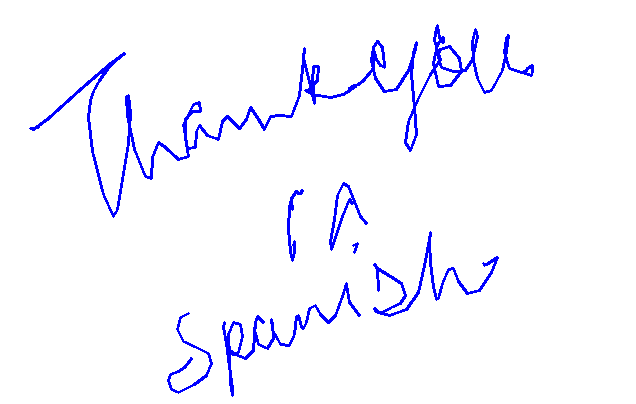 Thank you
in
Spanish